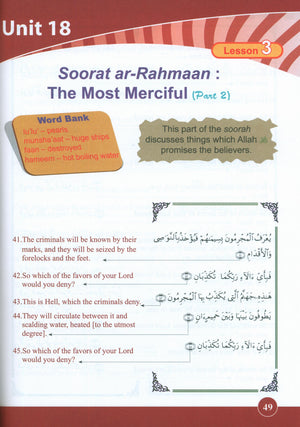 Unit 18
Lesson 3
Soorat ar-Rahmaan :
The Most Merciful (Part 2)
Word Bank
lu'lu' – pearls
munsha'aat – huge ships
faan – destroyed
hameem - hot boiling water
This part of the soorah
discusses things which Allah ﷻ
promises the believers.
41.The criminals will be known by their
marks, and they will be seized by the
forelocks and the feet.
يُعْرَفُ ٱلْمُجْرِمُونَ بِسِيمَٰهُمْ فَيُؤْخَذُ بِٱلنَّوَٰصِى
وَٱلْأَقْدَامِ
42.So which of the favors of your Lord
would you deny?
فَبِأَىِّ ءَالَآءِ رَبِّكُمَا تُكَذِّبَانِ
43.This is Hell, which the criminals deny.
هَٰذِهِۦ جَهَنَّمُ ٱلَّتِى يُكَذِّبُ بِهَا ٱلْمُجْرِمُونَ
44.They will circulate between it and
scalding water, heated [to the utmost
degree].
يَطُوفُونَ بَيْنَهَا وَبَيْنَ حَمِيمٍ ءَانٍ
45.So which of the favors of your Lord
would you deny?
فَبِأَىِّ ءَالَآءِ رَبِّكُمَا تُكَذِّبَانِ
49